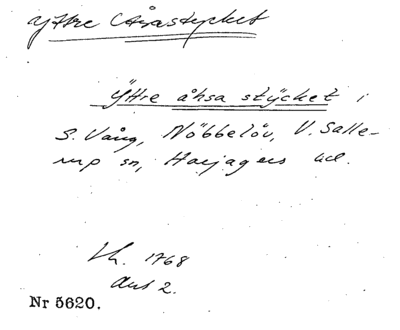 Yttre Åsastycket
Yttre åhsa stÿcket i
S. Vång, Nöbbelöv, V. Salle-
rup sn, Harjagers hd.
Lh. 1768
Akt 2.
Nr 5620.